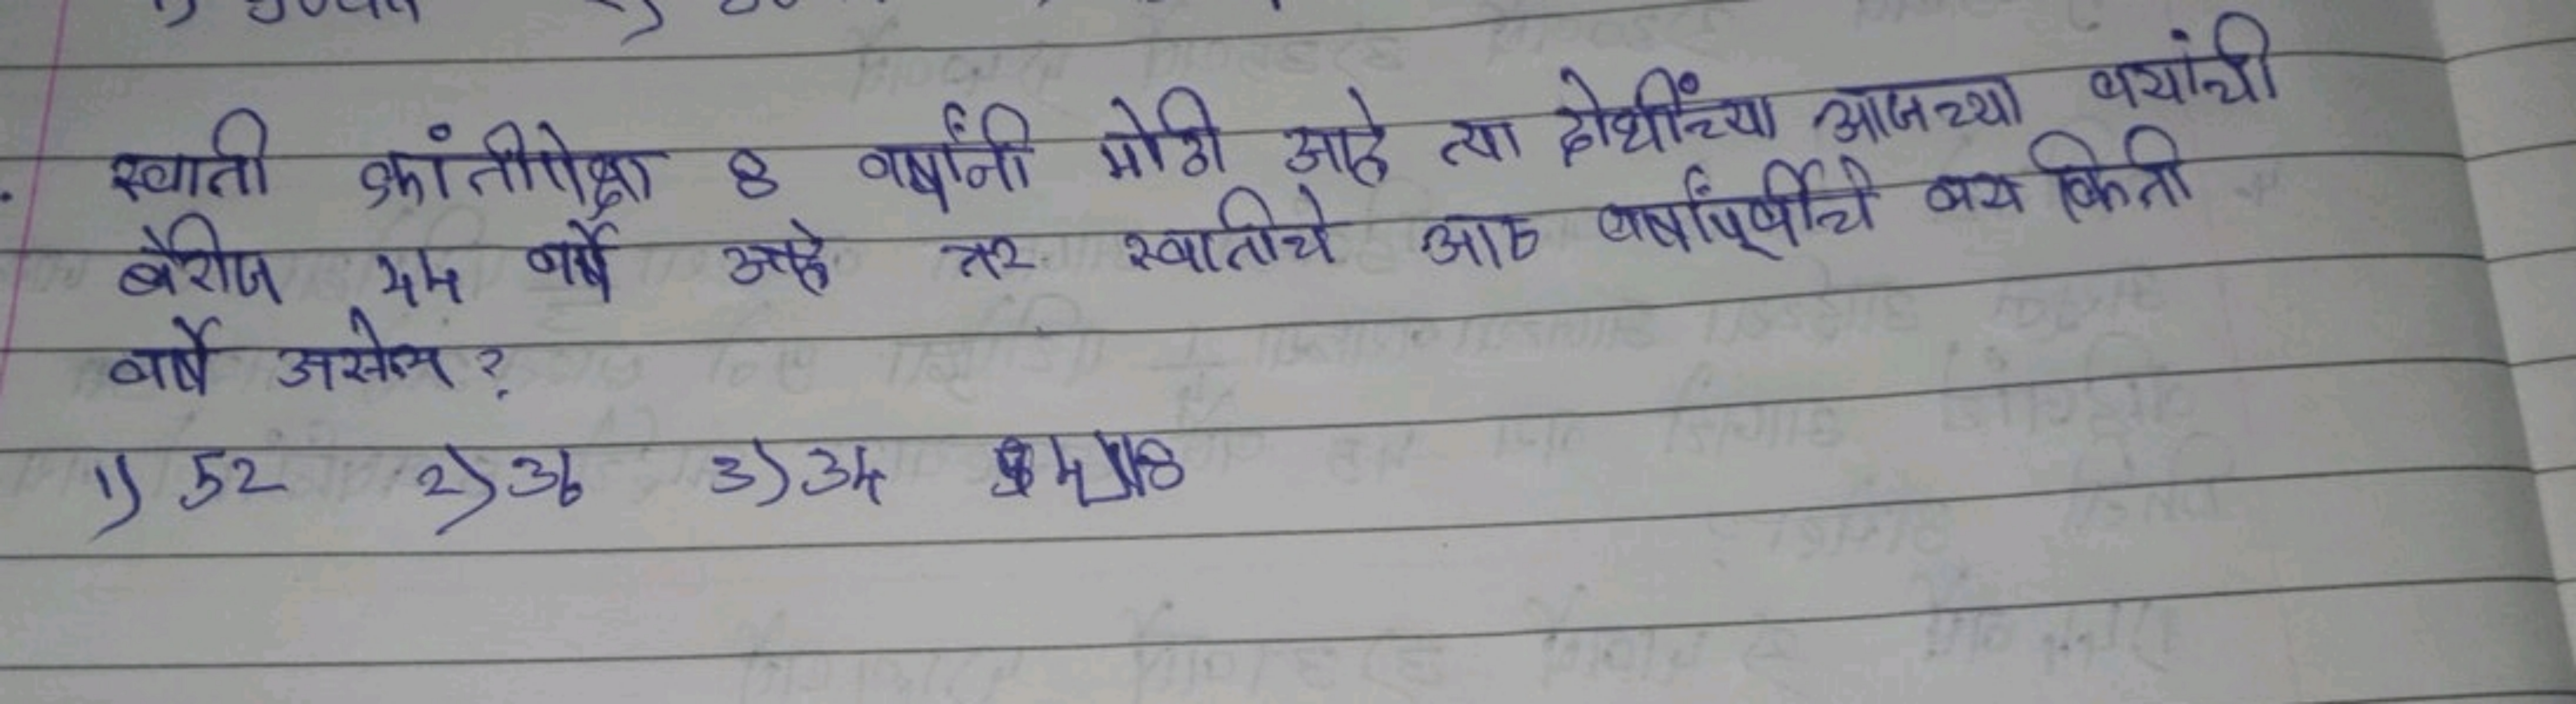 स्वाती क्रांतीपेक्षा 8 वर्षांनी मोठी आहे त्या दोघींच्या आजच्या वयांची
बेरीज 44 वर्षे आहे तर स्वातीचे आठ वर्षांपूर्वीचे वय किती
वर्षे असेल?
1) 52 2) 36 3) 34 4) 18